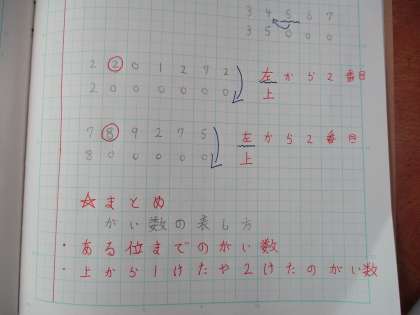 3 4 5 6 7
3 5 0 0 0
2 2 0 1 2 7 2 左から2番目
2 0 0 0 0 0 0 上
7 8 9 2 7 5 左から2番目
8 0 0 0 0 0 上
☆まとめ
がい数の表し方
・ある位までのがい数
・上から1けたや2けたのがい数